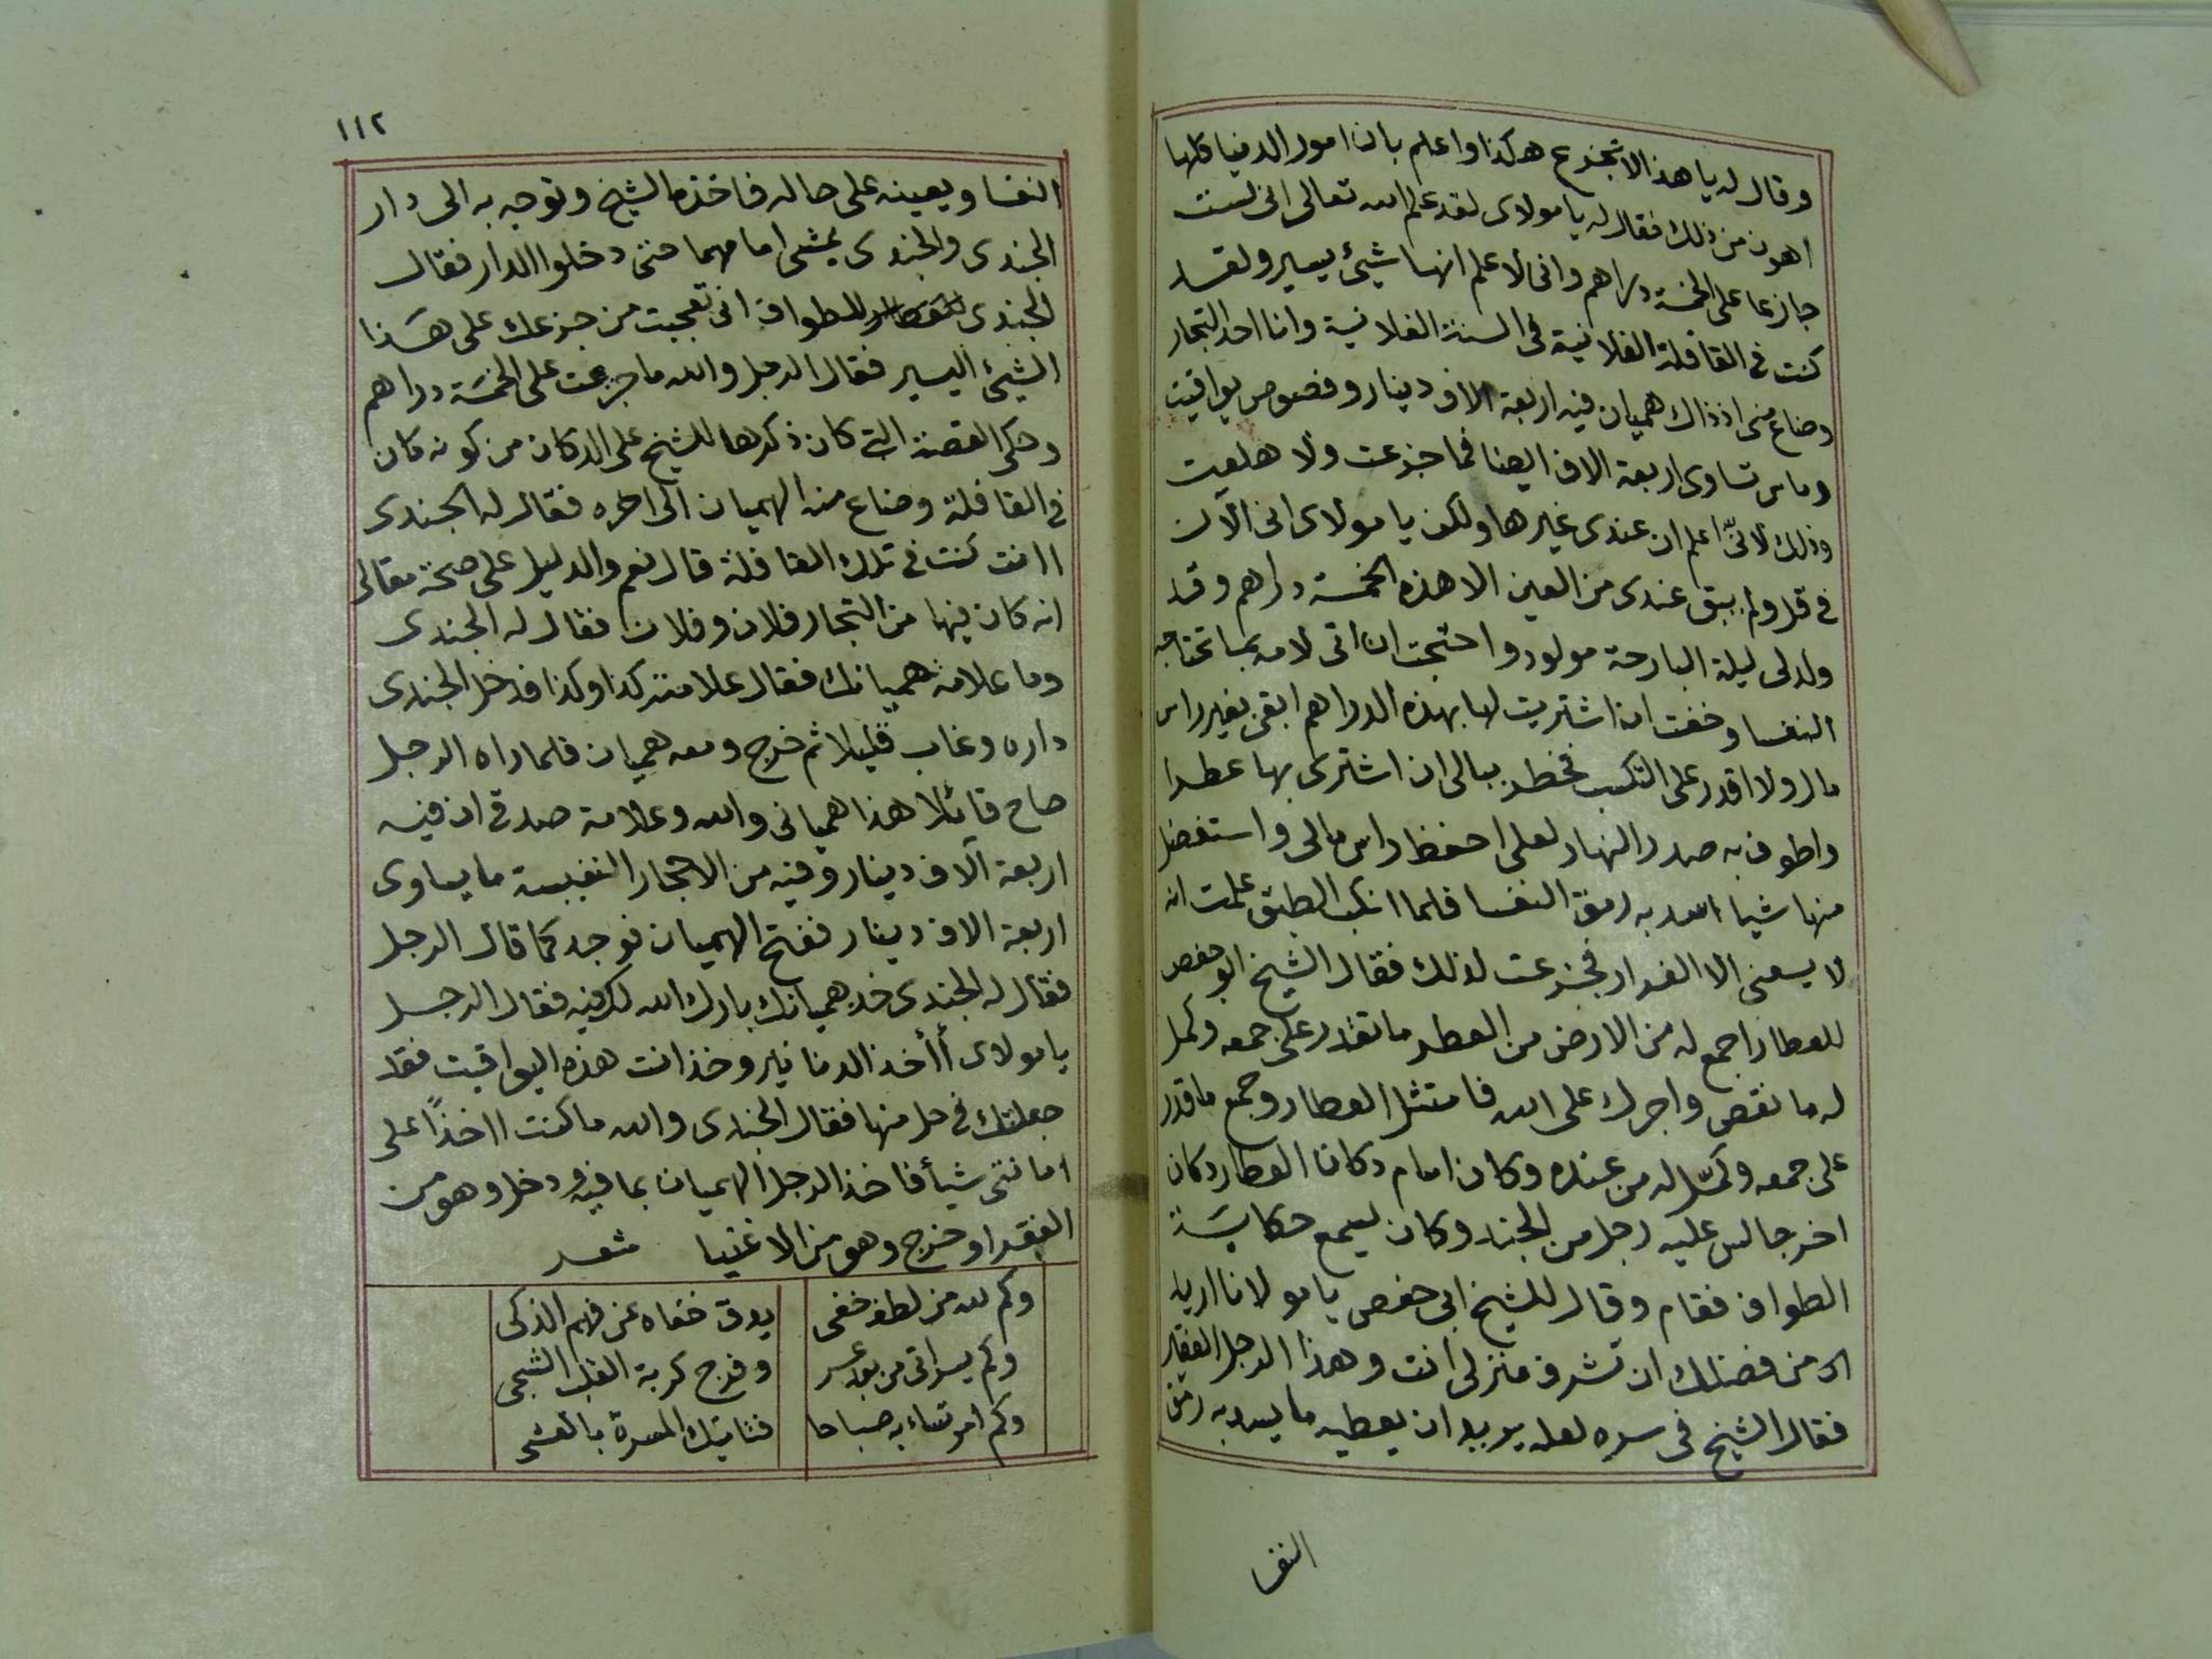 وقال له يا هذا لا تجزع هكذا واعلم بان امور الدنيا كلها
اهون من ذلك فقال له يا مولاى لقد علم الله تعالى انى لست
جازعا على الخمسة دراهم وانى لاعلم انها شيئ يسير ولقد
كنت فى القافلة الفلانية فى السنة الفلانية وانا احد التجار
وضاع منى اذ ذاك هميان فيه اربعة الاف دينار وفصوص يواقيت
وماس تساوى اربعة الاف ايضا فما جزعت ولا هلعت
وذلك لانّى اعلم ان عندى غيرها ولكن يا مولاى انى الآن
فى قل ولم يبق عندى من العين الا هذه الخمسة دراهم وقد
ولد لى ليلة البارحة مولود واحتجت ان اتى لامه بما تحتاجه
النفسا وخفت ان اشتريت لها بهذه الدراهم ابقى بغير راس
مال ولا اقدر على التكسب فخطر ببالى ان اشترى بها عطرا
واطوف به صدر النهار لعلى احفظ راس مالى واستفضل
منها شيا اسد به رمق النفسا فلما انكب الطبق علمت انه
لا يسعنى الا الفرار فجزعت لذلك فقال الشيخ ابو حفص
للعطار اجمع له من الارض من العطر ما تقدر على جمعه وكمل
له ما نقص واجرك على الله فامتثل العطار وجمع ما قدر
على جمعه وكمّل له من عنده وكان امام دكان العطار دكان
اخر جالس عليه رجل من الجند وكان يسمع حكاية
الطواف فقام وقال للشيخ ابى حفص يا مولانا اريد
من فضلك ان تشرف منزلى انت وهذا الرجل الفقير
فقال الشيخ فى سره لعله يريد ان يعطيه ما يسد به رمق
النفسا
١١٢
النفسا ويعينه على حاله فاخذه الشيخ وتوجه به الى دار
الجندى والجندى يمشى امامهما حتى دخلوا الدار فقال
الجندى للطواف انى تعجبت من جزعك على هذا
الشيئ اليسير فقال الرجل والله ما جزعت على الخمسة دراهم
وحكى القصة التى كان ذكرها للشيخ على الدكان من كونه كان
فى القافلة وضاع منه الهميان الى اخره فقال له الجندى
اانت كنت فى تلك القافلة قال نعم والدليل على صحة مقالى
انه كان فيها من التجار فلان وفلان فقال له الجندى
وما علامة هميانك فقال علامته كذا وكذا فدخل الجندى
داره وغاب قليلا ثم خرج ومعه هميان فلما راه الرجل
صاح قائلا هذا هميانى والله وعلامة صدقى ان فيه
اربعة آلاف دينار وفيه من الاحجار النفيسة ما يساوى
اربعة الاف دينار ففتح الهميان فوجد كما قال الرجل
فقال له الجندى خذ هميانك بارك الله لك فيه فقال الرجل
يا مولاى أأخذ الدنانير وخذ انت هذه اليواقيت فقد
جعلتك فى حل منها فقال الجندى والله ما كنت ااخذًا على
امانتى شيأ فاخذ الرجل الهميان بما فيه ودخل وهو من
الفقرا وخرج وهو من الاغنيا شعر
وكم لله من لطف خفى يدق خفاه عن فهم الذكى
وكم يسر اتى من بعد عسر وفرج كربة القلب الشجى
وكم امر تساء به صباحا فتاتيك المسرة بالعشى